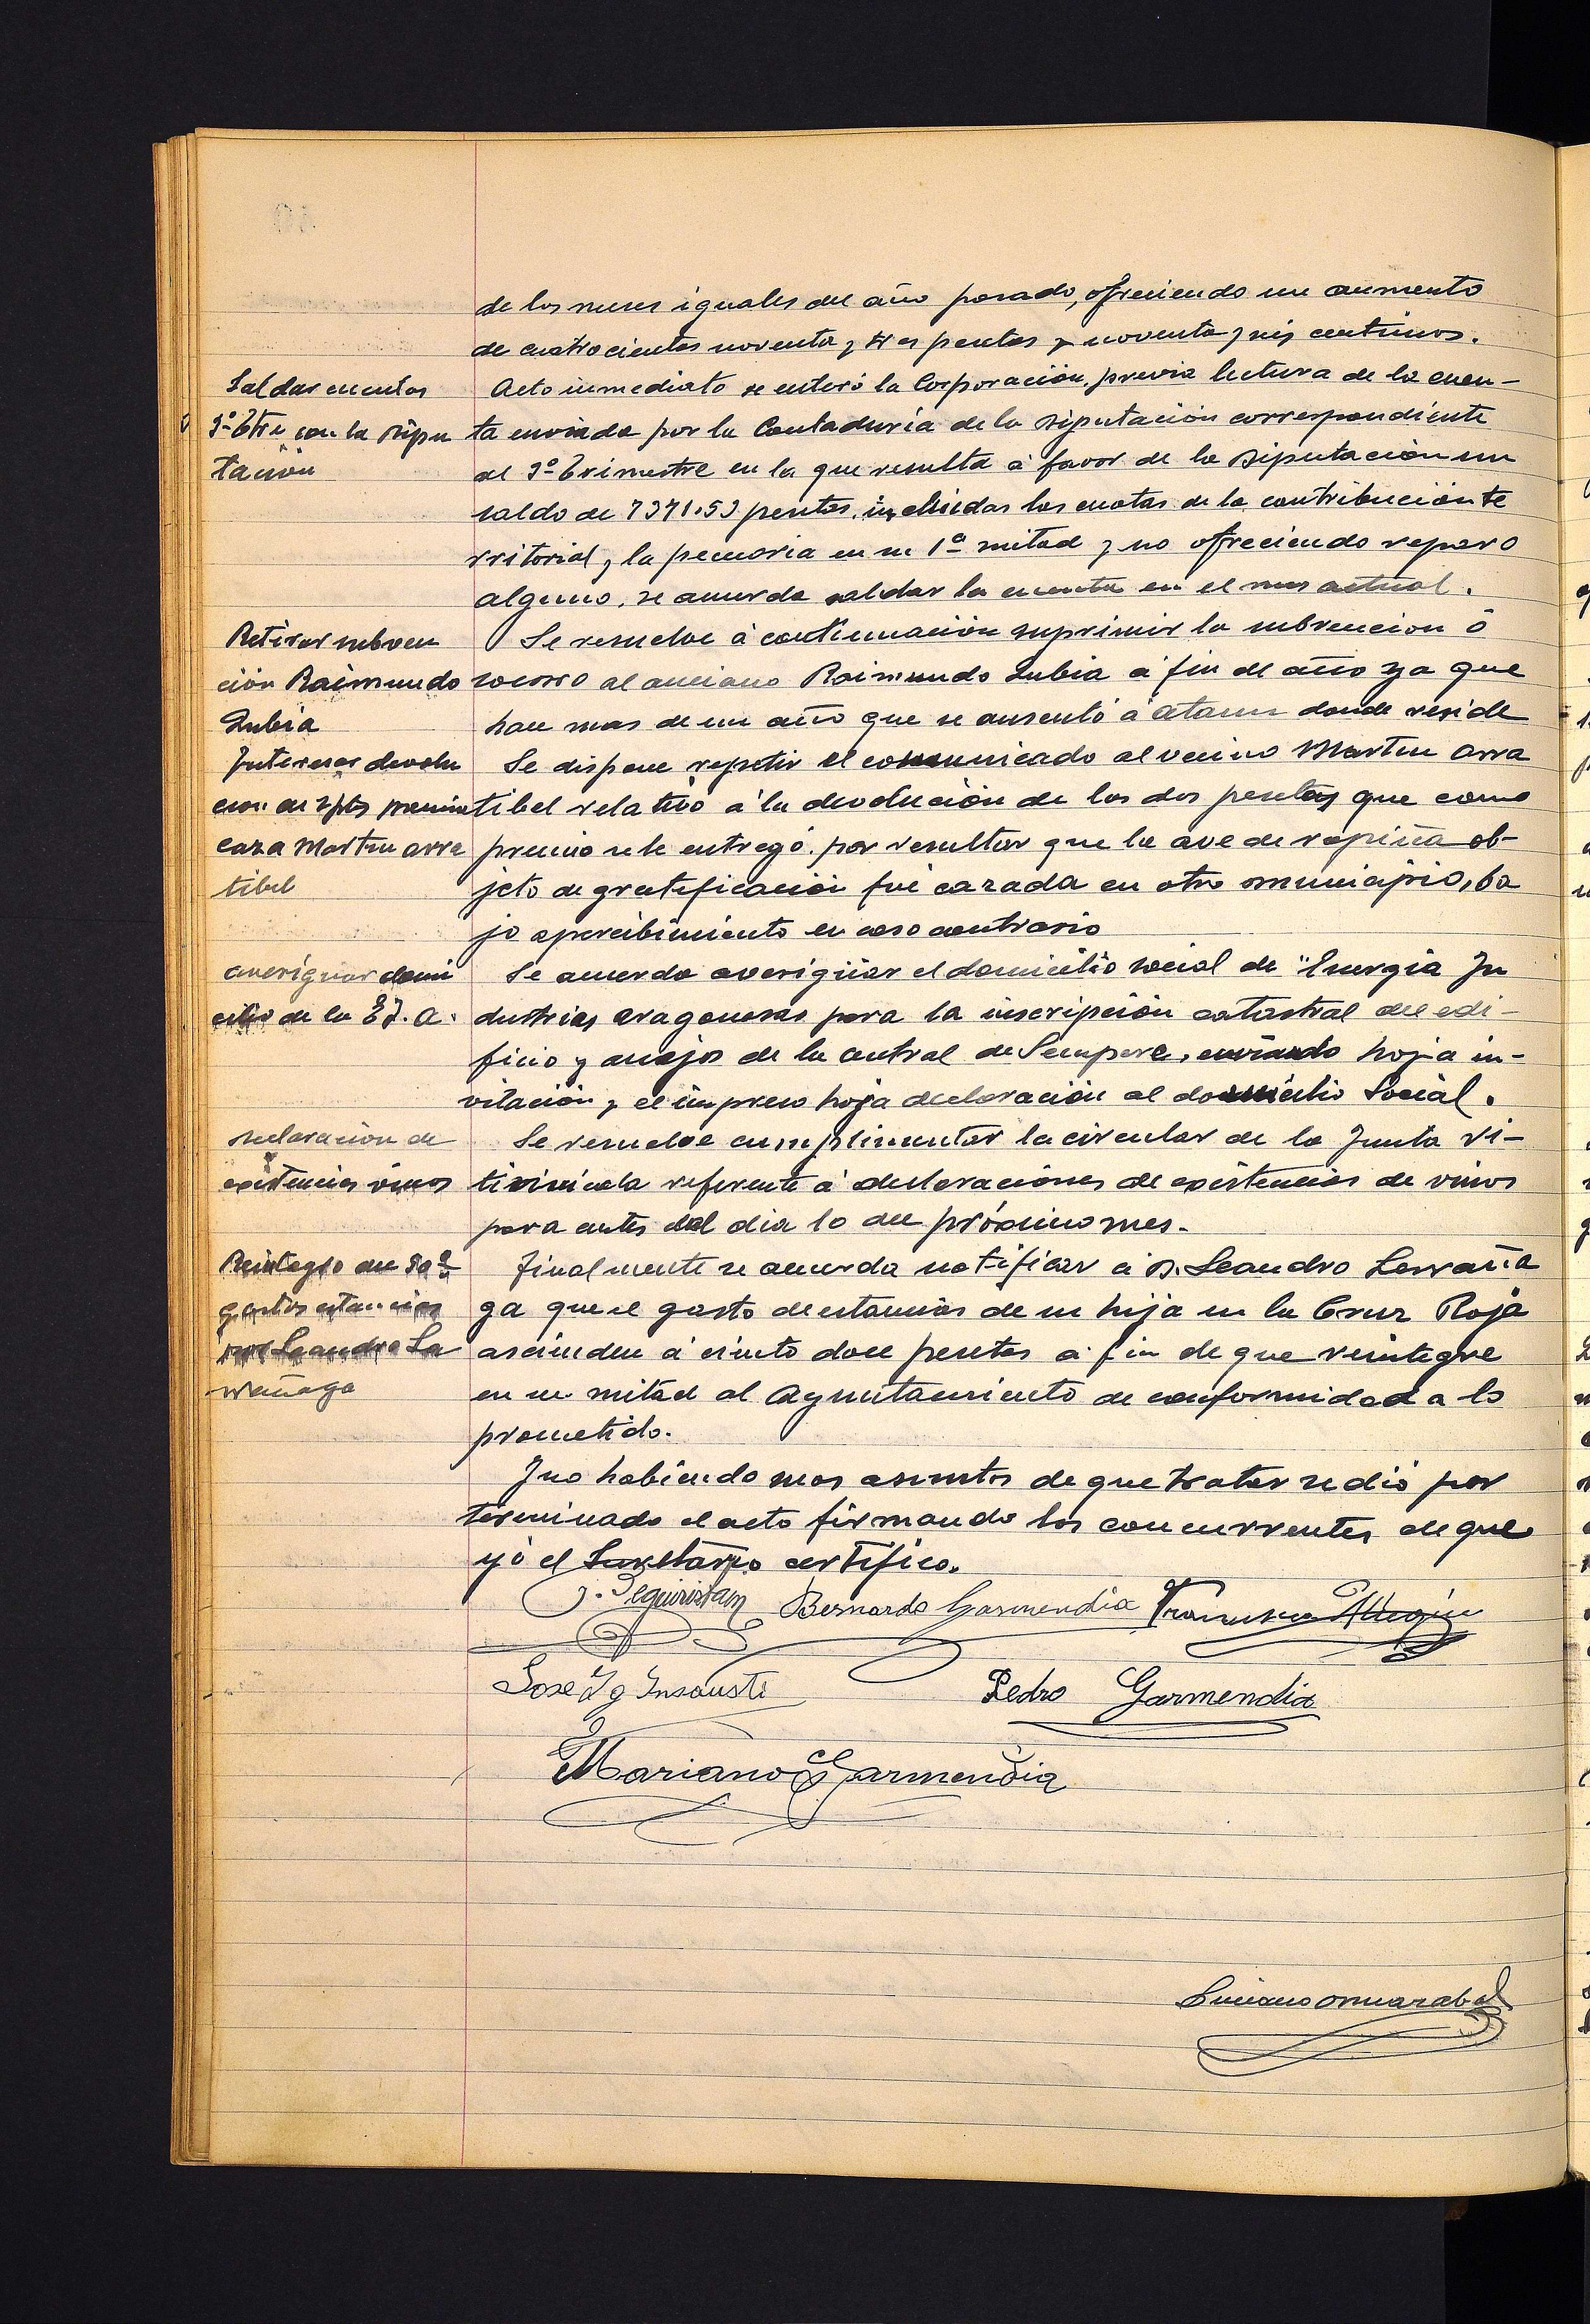 de los meses iguales del año pasado, ofreciendo un aumento
de cuatrocientas noventa y tres pesetas y noventa y seis centimos.
Saldar cuentas
3º Etre con la Dipu
tación
Acto inmediato se enteró la Corporación, previa lectura de la cuen-
ta enviada por la Contaduría de la Diputación correspondiente
al 3º Trimestre en la que resulta á favor de la Diputación un
saldo de 7371.53 pesetas, incluidas las cuotas de la contribución te
rritorial y la pecuaria en su 1ª mitad y no ofreciendo reparo
alguno, se acuerda saldar la cuenta en el mes actual.
Retirar subven
ción Raimundo
Lubia
Se resuelve á continuación suprimir la subvencion ó
socorro al anciano Raimundo Lubia á fin de año ya que
hace mas de un año que se ausentó á Ataun donde reside
Interesar devolu
cion de 2 pts premio
caza Martin Arra
tibel
Se dispone repetir el comunicado al vecino Martin Arra
tibel relativo á la devolución de las dos pesetas que como
premio se le entregó, por resultar que la ave de rapiña ob-
jeto de gratificación fué cazada en otro municipio, ba
jo apercibimiento en caso contrario
averiguar domi
cilio de la E. I. A.
Se acuerda averigüar el domicilio social de "Energia In
dustrias aragonesas para la inscripción catastral del edi-
ficio y anejos de la central de Sempere, enviando hoja in-
vitación y el impreso hoja declaración al domicilio Social.
Declaración de
existencias vinos
Se resuelve cumplimentar la circular de la Junta Vi-
tivinícola referente á declaraciones de existencias de vinos
para antes del dia 10 del próximo mes.
Reintegro de
gastos estancias
por Leandro La
rrañaga
Finalmente se acuerda notificar á D. Leandro Larraña
ga que el gasto de estancias de su hija en la Cruz Roja
ascienden á ciento doce pesetas á fin de que reintegre
en su mitad al Ayuntamiento de conformidad a lo
prometido.
Y no habiendo mas asuntos de que tratar se dió por
terminado el acto firmando los concurrentes de que
yó el Secretario certifico.
Bernardo Garmendia Francisco
José Ig Insausti Pedro Garmendia
Mariano Garmendia
Luciano